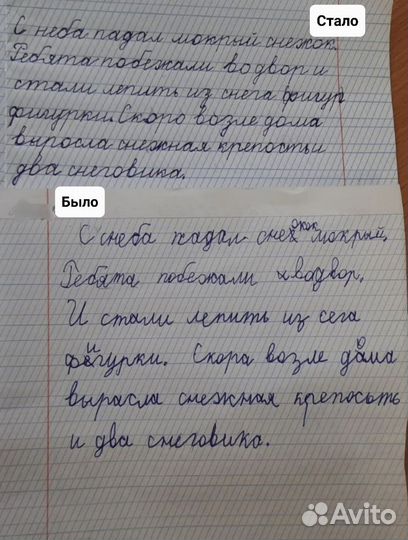 Стало
С неба падал мокрый снежок.
Ребята побежали во двор и
стали лепить из снега фигур
фигурки. Скоро возле дома
выросла снежная крепость и
два снеговика.
Было
С неба падал снежок мокрый.
Ребята побежали водвор.
И стали лепить из сега
фигурки. Скора возле дома
вырасла снежная крепосьть
и два снеговика.
Avito